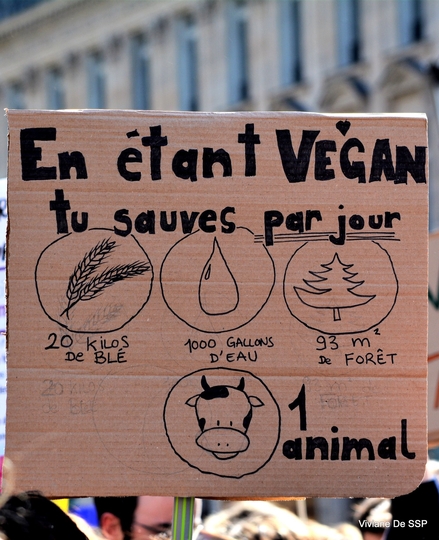 En étant VEGAN
tu sauves par jour
20 KILOS
De BLÉ
1000 GALLONS
D'EAU
93 m²
De FORÊT
1
animal
Viviane De SSP